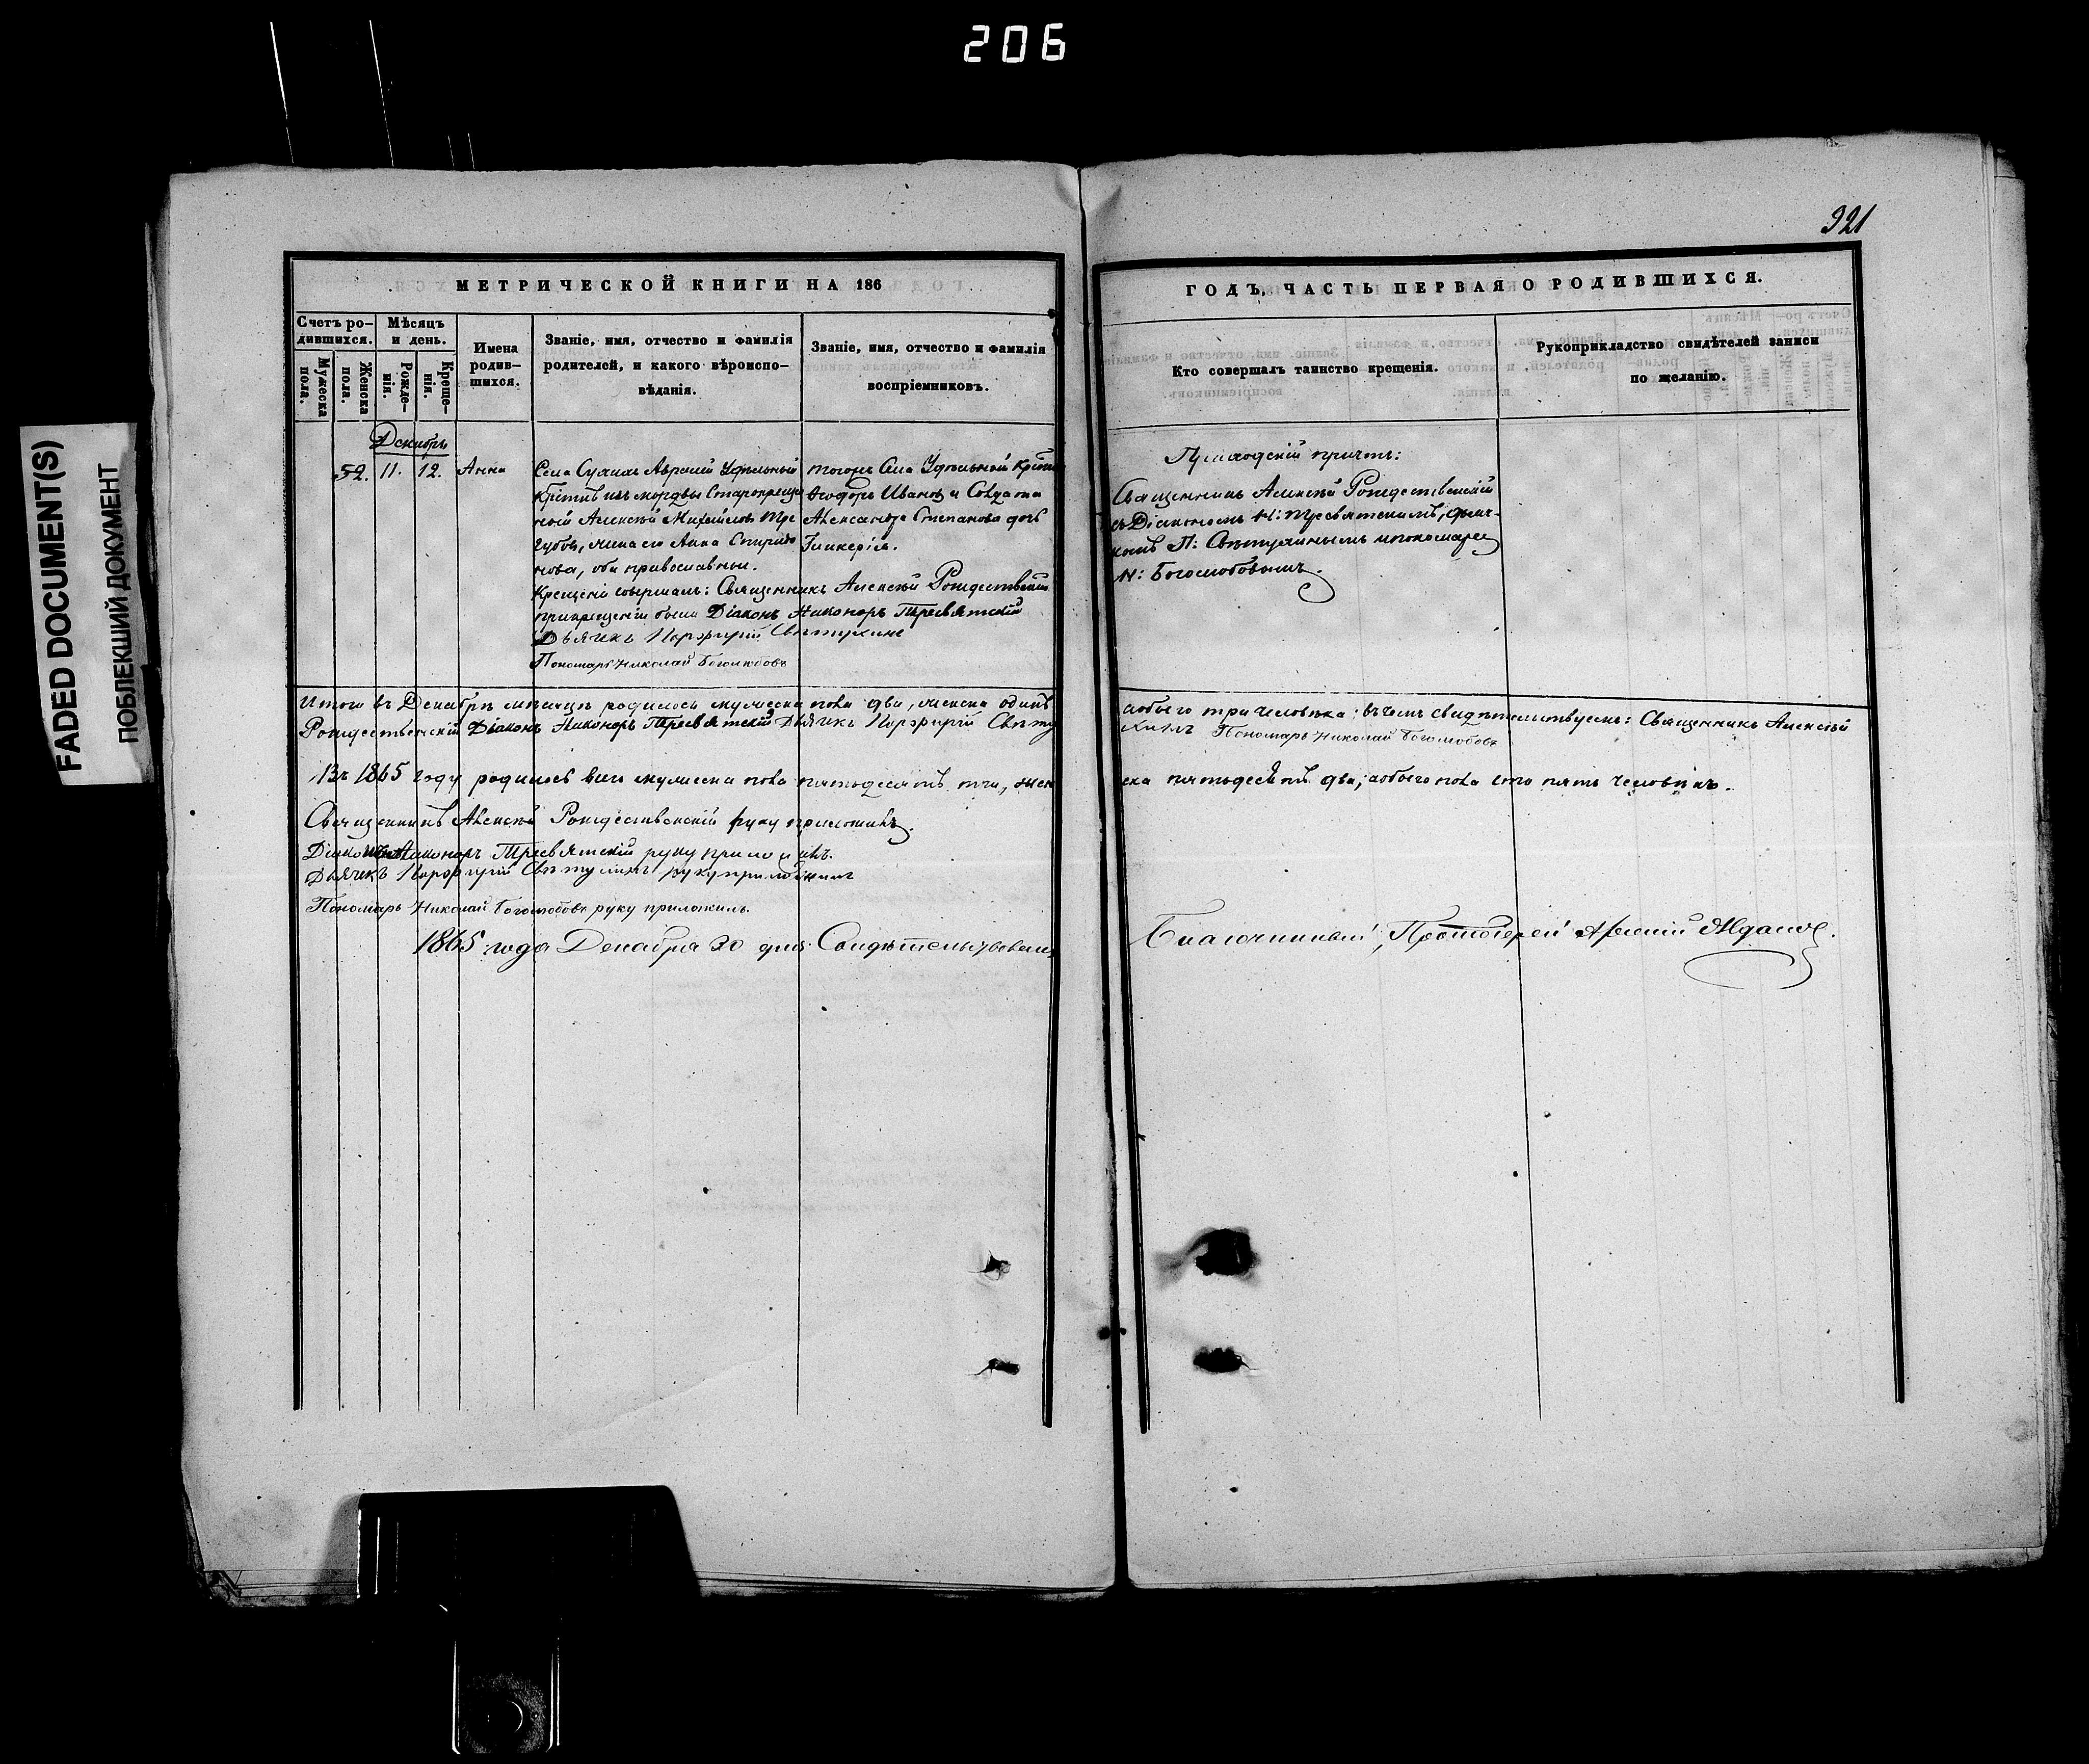 206
FADED DOCUMENT(S)
ПОБЛЕКШИЙ ДОКУМЕНТ
МЕТРИЧЕСКОЙ КНИГИ НА 186
Счетъ ро-
дившихся.
Мужеска
пола.
Женска
пола.
Мѣсяцъ
и день.
Рожде-
нія.
Креще-
нія.
Имена
родив-
шихся.
Званіе, имя, отчество и фамилія
родителей, и какого вѣроиспо-
вѣданія.
Званіе, имя, отчество и фамилія
воспріемниковъ.
Декабрь
52. 11. 12. Анна
Села Удѣльный
изъ мордвы Старокреще
ный Алексѣй Михайловъ Тре
губовъ, жена его Анна Спиридо
нова, оба православные.
тогожъ Села Удѣльной
Ѳеодоръ Ивановъ и Солдата
Александра Степанова дочь
Гликерія.
Крещеніе совершалъ: Священникъ Алексѣй Рождественскій
при крещеніи были Діаконъ Никоноръ Тресвятскій
Дьячекъ Порфирій
Пономарь Николай Боголюбовъ
Итого въ Декабрѣ мѣсяцѣ родилось мужеска пола два, женска одинъ
Рождественскій Діаконъ Никоноръ Тресвятскій Дьячекъ Порфирій
Въ 1865 году родилось всего мужеска пола пятьдесятъ три, жен
Священникъ Алексѣй Рождественскій руку приложилъ.
Діаконъ Никоноръ Тресвятскій руку приложилъ.
Дьячекъ Порфирій руку приложилъ
Пономарь Николай Боголюбовъ руку приложилъ.
1865 года Декабря 30 дня Свидѣтельствовалъ
321
ГОДЪ, ЧАСТЬ ПЕРВАЯ О РОДИВШИХСЯ.
Кто совершалъ таинство крещенія.
Рукоприкладство свидѣтелей записи
по желанію.
Приходскій причтъ:
Священникъ Алексѣй Рождественскій
съ Діакономъ Н: Тресвятскимъ, дьяч-
комъ П: и пономаремъ
Н: Боголюбовымъ.
а обоего три человѣка; въ чемъ свидѣтельствуемъ: Священникъ Алексѣй
Пономарь Николай Боголюбовъ
ска пятьдесятъ два; а обоего пола сто пять человѣкъ.
Благочинный, Протоіерей